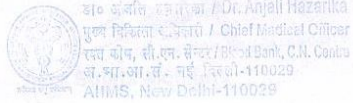 डा० अंजलि हजारिका / Dr. Anjali Hazarika
मुख्य चिकित्सा अधिकारी / Chief Medical Officer
रक्त कोष, सी.एन. सेन्टर / Blood Bank, C.N. Centre
अ.भा.आ.सं. नई दिल्ली-110029
AIIMS, New Delhi-110029